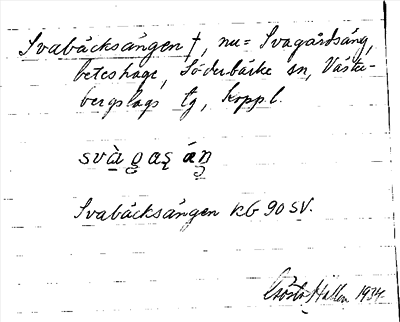 Svabäcksängen †, nu = Svagårdsäng,
beteshage, Söderbärke sn, Väster-
bergslags tg, koppl.
Svabäcksängen kb 90 SV.
Gösta Hallen 1934.